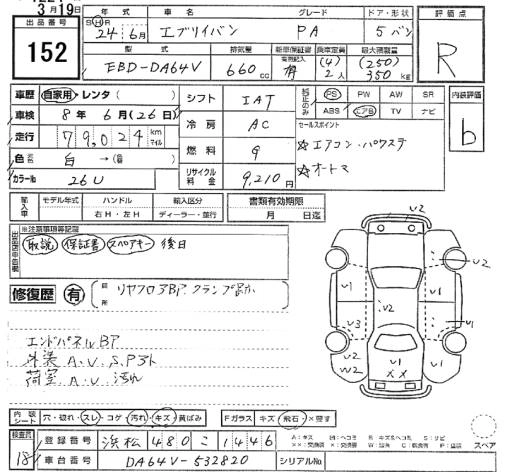 3月19日
出品番号 152
年式 車名 グレード ドア・形状 評価点
SH 24年6月 エブリイバン PA 5バン R
型式 排気量 新車保証書 乗車定員 最大積載量
EBD-DA64V 660cc 有 (4) 2人 (250) 350kg
車歴 自家用・レンタ( )
車検 8年6月(26日)
走行 79,024 km マイル
色 白→( )
カラーNo 26U
シフト IAT
冷房 AC
燃料 G
リサイクル料金 9,210円
純正のみ PS PW AW SR
ABS エアB TV ナビ
内装評価 b
セールスポイント
☆エアコン・パワステ
☆オートマ
輸入車 モデル年式 ハンドル 輸入区分 書類有効期限
右H・左H ディーラー・並行 月 日迄
※注意事項等記載
取説 保証書 スペアキー 後日
修復歴 有 箇所 リヤフロアBP、クランプ跡
エンドパネルBP
外装 A.V.S.Pヨト
荷室 A.V 汚れ
V2
V2
V1 V1
V2
V3 V1
A2 V1
W2 XX V1
内装シート 穴・破れ・スレ・コゲ・汚れ・キズ・黄ばみ Fガラス キズ・飛石・×要す
検査員 18
登録番号 浜松 480 こ 1446
A:キズ U:ヘコミ B:キズ&ヘコミ S:サビ
スペア
車台番号 DA64V-532820 シリアルNo